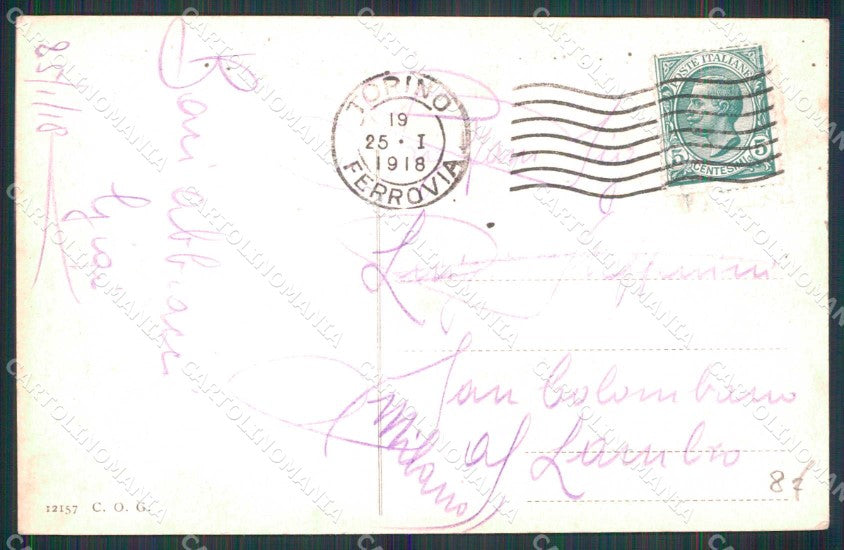 25/1/18
Baci abbracci
TORINO
19
25 · I
1918
FERROVIA
POSTE ITALIANE
5 5
CENTESIMI
San Colombano
al Lambro
Milano
8€
12157 C. O. G.
CARTOLINOMANIA